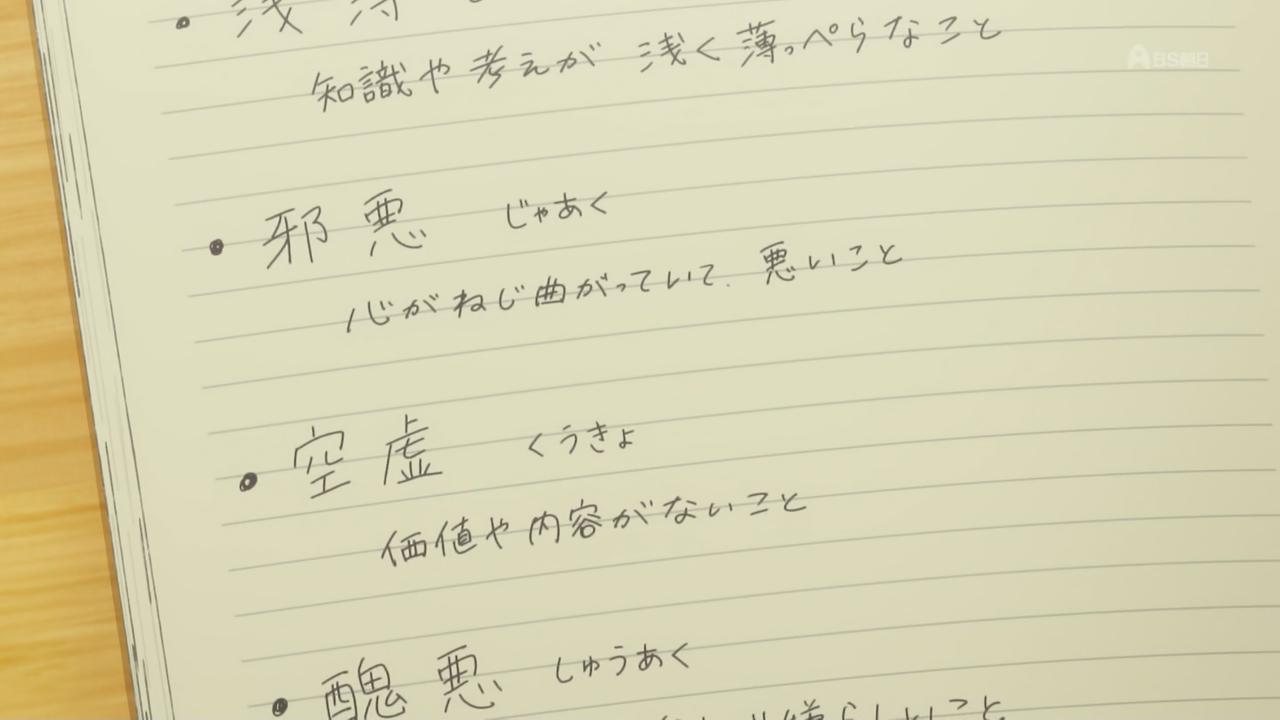 知識や考えが 浅く薄っぺらなこと
BS朝日
• 邪悪 じゃあく
心がねじ曲がっていて、悪いこと
• 空虚 くうきょ
価値や内容がないこと
• 醜悪 しゅうあく
嫌らしいこと